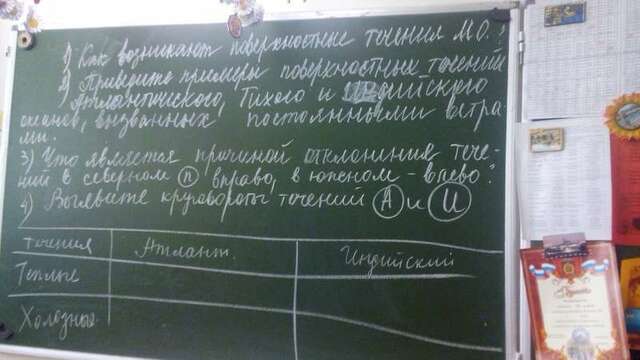 1) Как возникают поверхностные течения М.О.?
2) Приведите примеры поверхностных течений
Атлантического, Тихого и Индийского
океанов, вызванных постоянными ветра-
ми.
3) Что является причиной отклонения тече-
ний в северном п вправо, в южном - влево?
4) Выявите круговороты течений А и И
Течения Атлант. Индийский
Теплые
Холодные